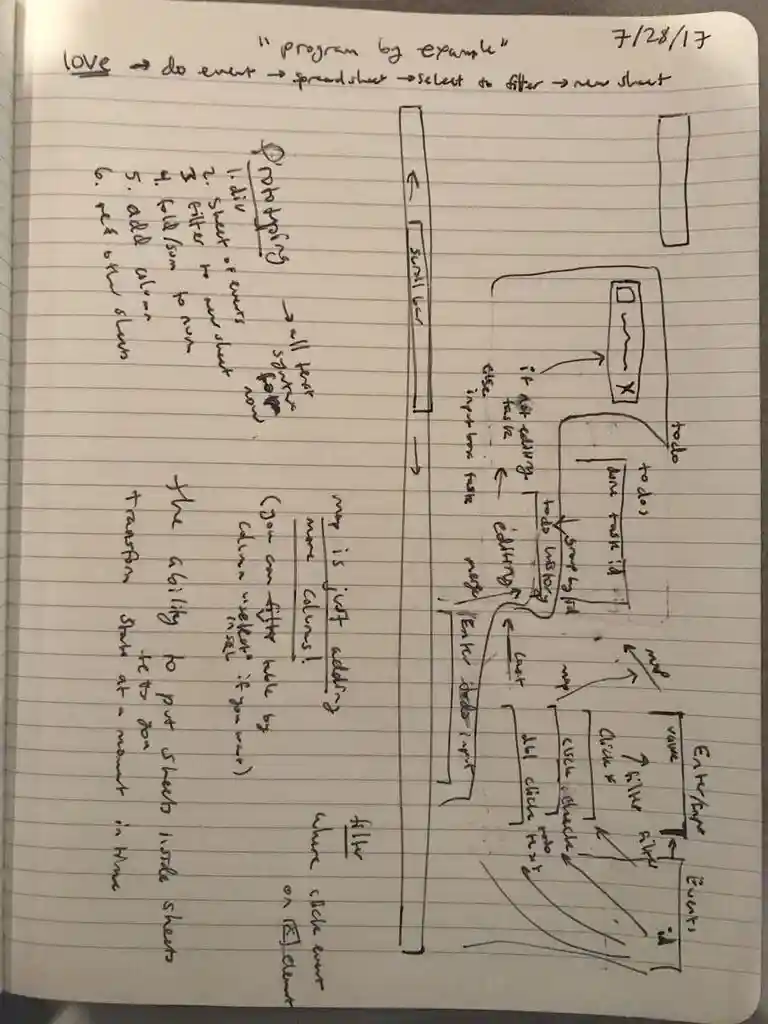 7/28/17
"program by example"
love → do event → spreadsheet → select to filter → new sheet
todo
todos
done task id
group by id
todo history
if not editing
task
else
input box task
editing
merge
Enter todo input
cust
map
map
Enter/tape
value
filter
filter
Click x
click check
dbl click todo text
Events
id
scroll bar
Prototyping
1. div
2. sheet of events
3 filter to new sheet
4. fold/sum to num
5. add column
6. ref other sheets
→ all text
syntax
for now
map is just adding
more columns!
(you can filter table by
column &
select" if you want)
in SQL
the ability to put sheets inside sheets
lets you
transform state at a moment in time
filter
where click event
on element